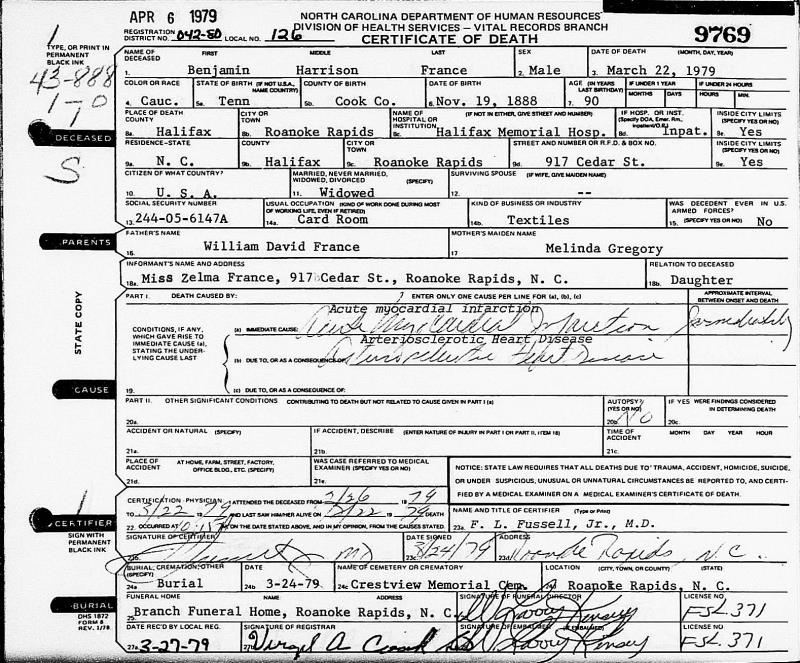 APR 6 1979
NORTH CAROLINA DEPARTMENT OF HUMAN RESOURCES
DIVISION OF HEALTH SERVICES – VITAL RECORDS BRANCH
CERTIFICATE OF DEATH
9769
REGISTRATION DISTRICT NO. 042-80 LOCAL NO. 126
TYPE, OR PRINT IN PERMANENT BLACK INK
43-888
1-70
NAME OF DECEASED FIRST MIDDLE LAST SEX DATE OF DEATH (MONTH, DAY, YEAR)
1. Benjamin Harrison France 2. Male 3. March 22, 1979
COLOR OR RACE STATE OF BIRTH (IF NOT U.S.A., NAME COUNTRY) COUNTY OF BIRTH DATE OF BIRTH AGE (IN YEARS LAST BIRTHDAY) IF UNDER 1 YEAR IF UNDER 24 HOURS
MONTHS DAYS HOURS MIN.
4. Cauc. 5a. Tenn 5b. Cook Co. 6. Nov. 19, 1888 7. 90
DECEASED
PLACE OF DEATH COUNTY CITY OR TOWN NAME OF HOSPITAL OR INSTITUTION (IF NOT IN EITHER, GIVE STREET AND NUMBER) IF HOSP. OR INST. (Specify DOA, Emer. Rm., Inpatient/O.P.) INSIDE CITY LIMITS (SPECIFY YES OR NO)
8a. Halifax 8b. Roanoke Rapids 8c. Halifax Memorial Hosp. 8d. Inpat. 8e. Yes
S
RESIDENCE-STATE COUNTY CITY OR TOWN STREET AND NUMBER OR R.F.D. & BOX NO. INSIDE CITY LIMITS (SPECIFY YES OR NO)
9a. N. C. 9b. Halifax 9c. Roanoke Rapids 9d. 917 Cedar St. 9e. Yes
CITIZEN OF WHAT COUNTRY? MARRIED, NEVER MARRIED, WIDOWED, DIVORCED (SPECIFY) SURVIVING SPOUSE (IF WIFE, GIVE MAIDEN NAME)
10. U. S. A. 11. Widowed 12. --
SOCIAL SECURITY NUMBER USUAL OCCUPATION (KIND OF WORK DONE DURING MOST OF WORKING LIFE, EVEN IF RETIRED) KIND OF BUSINESS OR INDUSTRY WAS DECEDENT EVER IN U.S. ARMED FORCES?
13. 244-05-6147A 14a. Card Room 14b. Textiles 15. (SPECIFY YES OR NO) No
PARENTS
FATHER'S NAME MOTHER'S MAIDEN NAME
16. William David France 17 Melinda Gregory
INFORMANT'S NAME AND ADDRESS RELATION TO DECEASED
18a. Miss Zelma France, 917 Cedar St., Roanoke Rapids, N. C. 18b. Daughter
STATE COPY
PART I. DEATH CAUSED BY: ENTER ONLY ONE CAUSE PER LINE FOR (a), (b), (c) APPROXIMATE INTERVAL BETWEEN ONSET AND DEATH
Acute myocardial infarction
CONDITIONS, IF ANY, WHICH GAVE RISE TO IMMEDIATE CAUSE (a), STATING THE UNDERLYING CAUSE LAST
(a) IMMEDIATE CAUSE: Acute Myocardial Infarction Immediately
Arteriosclerotic Heart Disease
(b) DUE TO, OR AS A CONSEQUENCE OF: Arteriosclerotic Heart Disease
19. (c) DUE TO, OR AS A CONSEQUENCE OF:
CAUSE
PART II. OTHER SIGNIFICANT CONDITIONS CONTRIBUTING TO DEATH BUT NOT RELATED TO CAUSE GIVEN IN PART I (a) AUTOPSY? (YES OR NO) IF YES WERE FINDINGS CONSIDERED IN DETERMINING DEATH
20a. 20b. NO 20c.
ACCIDENT OR NATURAL (SPECIFY) IF ACCIDENT, DESCRIBE (ENTER NATURE OF INJURY IN PART I OR PART II, ITEM 18) TIME OF ACCIDENT MONTH DAY YEAR HOUR
21a. 21b. 21c.
PLACE OF ACCIDENT AT HOME, FARM, STREET, FACTORY, OFFICE BLDG., ETC. (SPECIFY) WAS CASE REFERRED TO MEDICAL EXAMINER (SPECIFY YES OR NO)
21d. 21e.
NOTICE: STATE LAW REQUIRES THAT ALL DEATHS DUE TO TRAUMA, ACCIDENT, HOMICIDE, SUICIDE,
OR UNDER SUSPICIOUS, UNUSUAL OR UNNATURAL CIRCUMSTANCES BE REPORTED TO, AND CERTI-
FIED BY A MEDICAL EXAMINER ON A MEDICAL EXAMINER'S CERTIFICATE OF DEATH.
CERTIFICATION - PHYSICIAN I ATTENDED THE DECEASED FROM 2/26 1979
TO 3/22 1979 AND LAST SAW HIM/HER ALIVE ON 3/22 1979 DEATH
22. OCCURRED AT ON THE DATE STATED ABOVE, AND IN MY OPINION, FROM THE CAUSES STATED.
NAME AND TITLE OF CERTIFIER (Type or Print)
23a. F. L. Fussell, Jr., M.D.
CERTIFIER
SIGN WITH PERMANENT BLACK INK
SIGNATURE OF CERTIFIER DATE SIGNED ADDRESS
23b. MD 23c. 3/24/79 23d. Roanoke Rapids N.C.
BURIAL, CREMATION, OTHER (SPECIFY) DATE NAME OF CEMETERY OR CREMATORY LOCATION (CITY, TOWN, OR COUNTY) (STATE)
24a Burial 24b 3-24-79 24c Crestview Memorial Cem. Roanoke Rapids, N. C.
BURIAL
DHS 1872
FORM 8
REV. 1/78
FUNERAL HOME NAME ADDRESS SIGNATURE OF FUNERAL DIRECTOR LICENSE NO.
25. Branch Funeral Home, Roanoke Rapids, N. C. W Larry Kinsey FSL 371
DATE REC'D BY LOCAL REG. SIGNATURE OF REGISTRAR SIGNATURE OF EMBALMER LICENSE NO
27a. 3-27-79 27b. Virgil A. W Larry Kinsey FSL 371